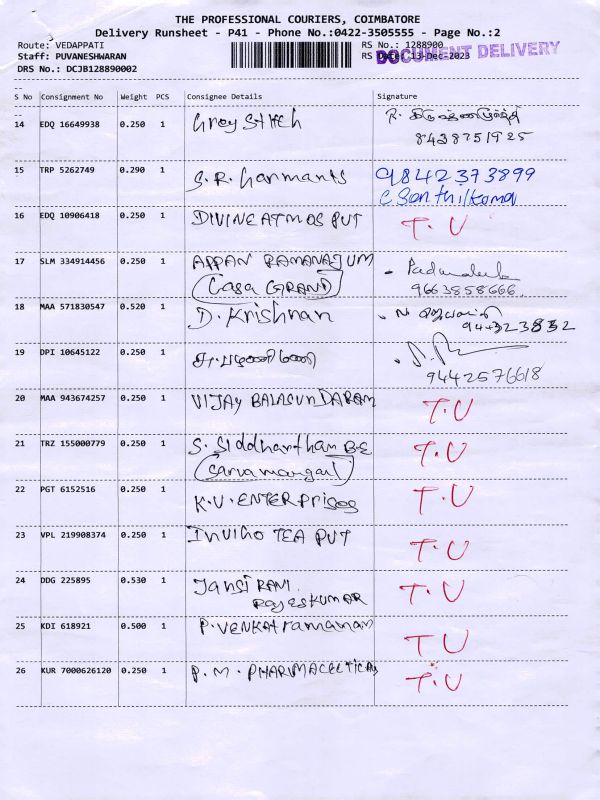 THE PROFESSIONAL COURIERS, COIMBATORE
Delivery Runsheet - P41 - Phone No.:0422-3505555 - Page No.:2
Route: VEDAPPATI
RS No.: 1288900
Staff: PUVANESHWARAN
RS Date: 13-Dec-2023
DOCUMENT DELIVERY
DRS No.: DCJB128890002
S No Consignment No Weight PCS Consignee Details Signature
14 EDQ 16649938 0.250 1 Grey Stitch R.
8438751925
15 TRP 5262749 0.290 1 S.R. Garmants 9842373899
C Senthilkumar
16 EDQ 10906418 0.250 1 DIVINE ATMOS PVT T.U
17 SLM 334914456 0.250 1 APPAN RAMANAJUM
(Casa GRAND) 9663858666
18 MAA 571830547 0.520 1 D. Krishnan
19 DPI 10645122 0.250 1
9442576618
20 MAA 943674257 0.250 1 VIJAY BALASUNDARAM T.U
21 TRZ 155000779 0.250 1 S. Siddharthan B.E T.U
(Sarvamangal)
22 PGT 6152516 0.250 1 K.V. ENTERPrises T.U
23 VPL 219908374 0.250 1 INVIHO TEA PVT T.U
24 DDG 225895 0.530 1 Jansi RANI T.U
RAJESKUMAR
25 KDI 618921 0.500 1 P. VENKATramanan T U
26 KUR 7000626120 0.250 1 P.M. PHARMACEUTICAL T.U